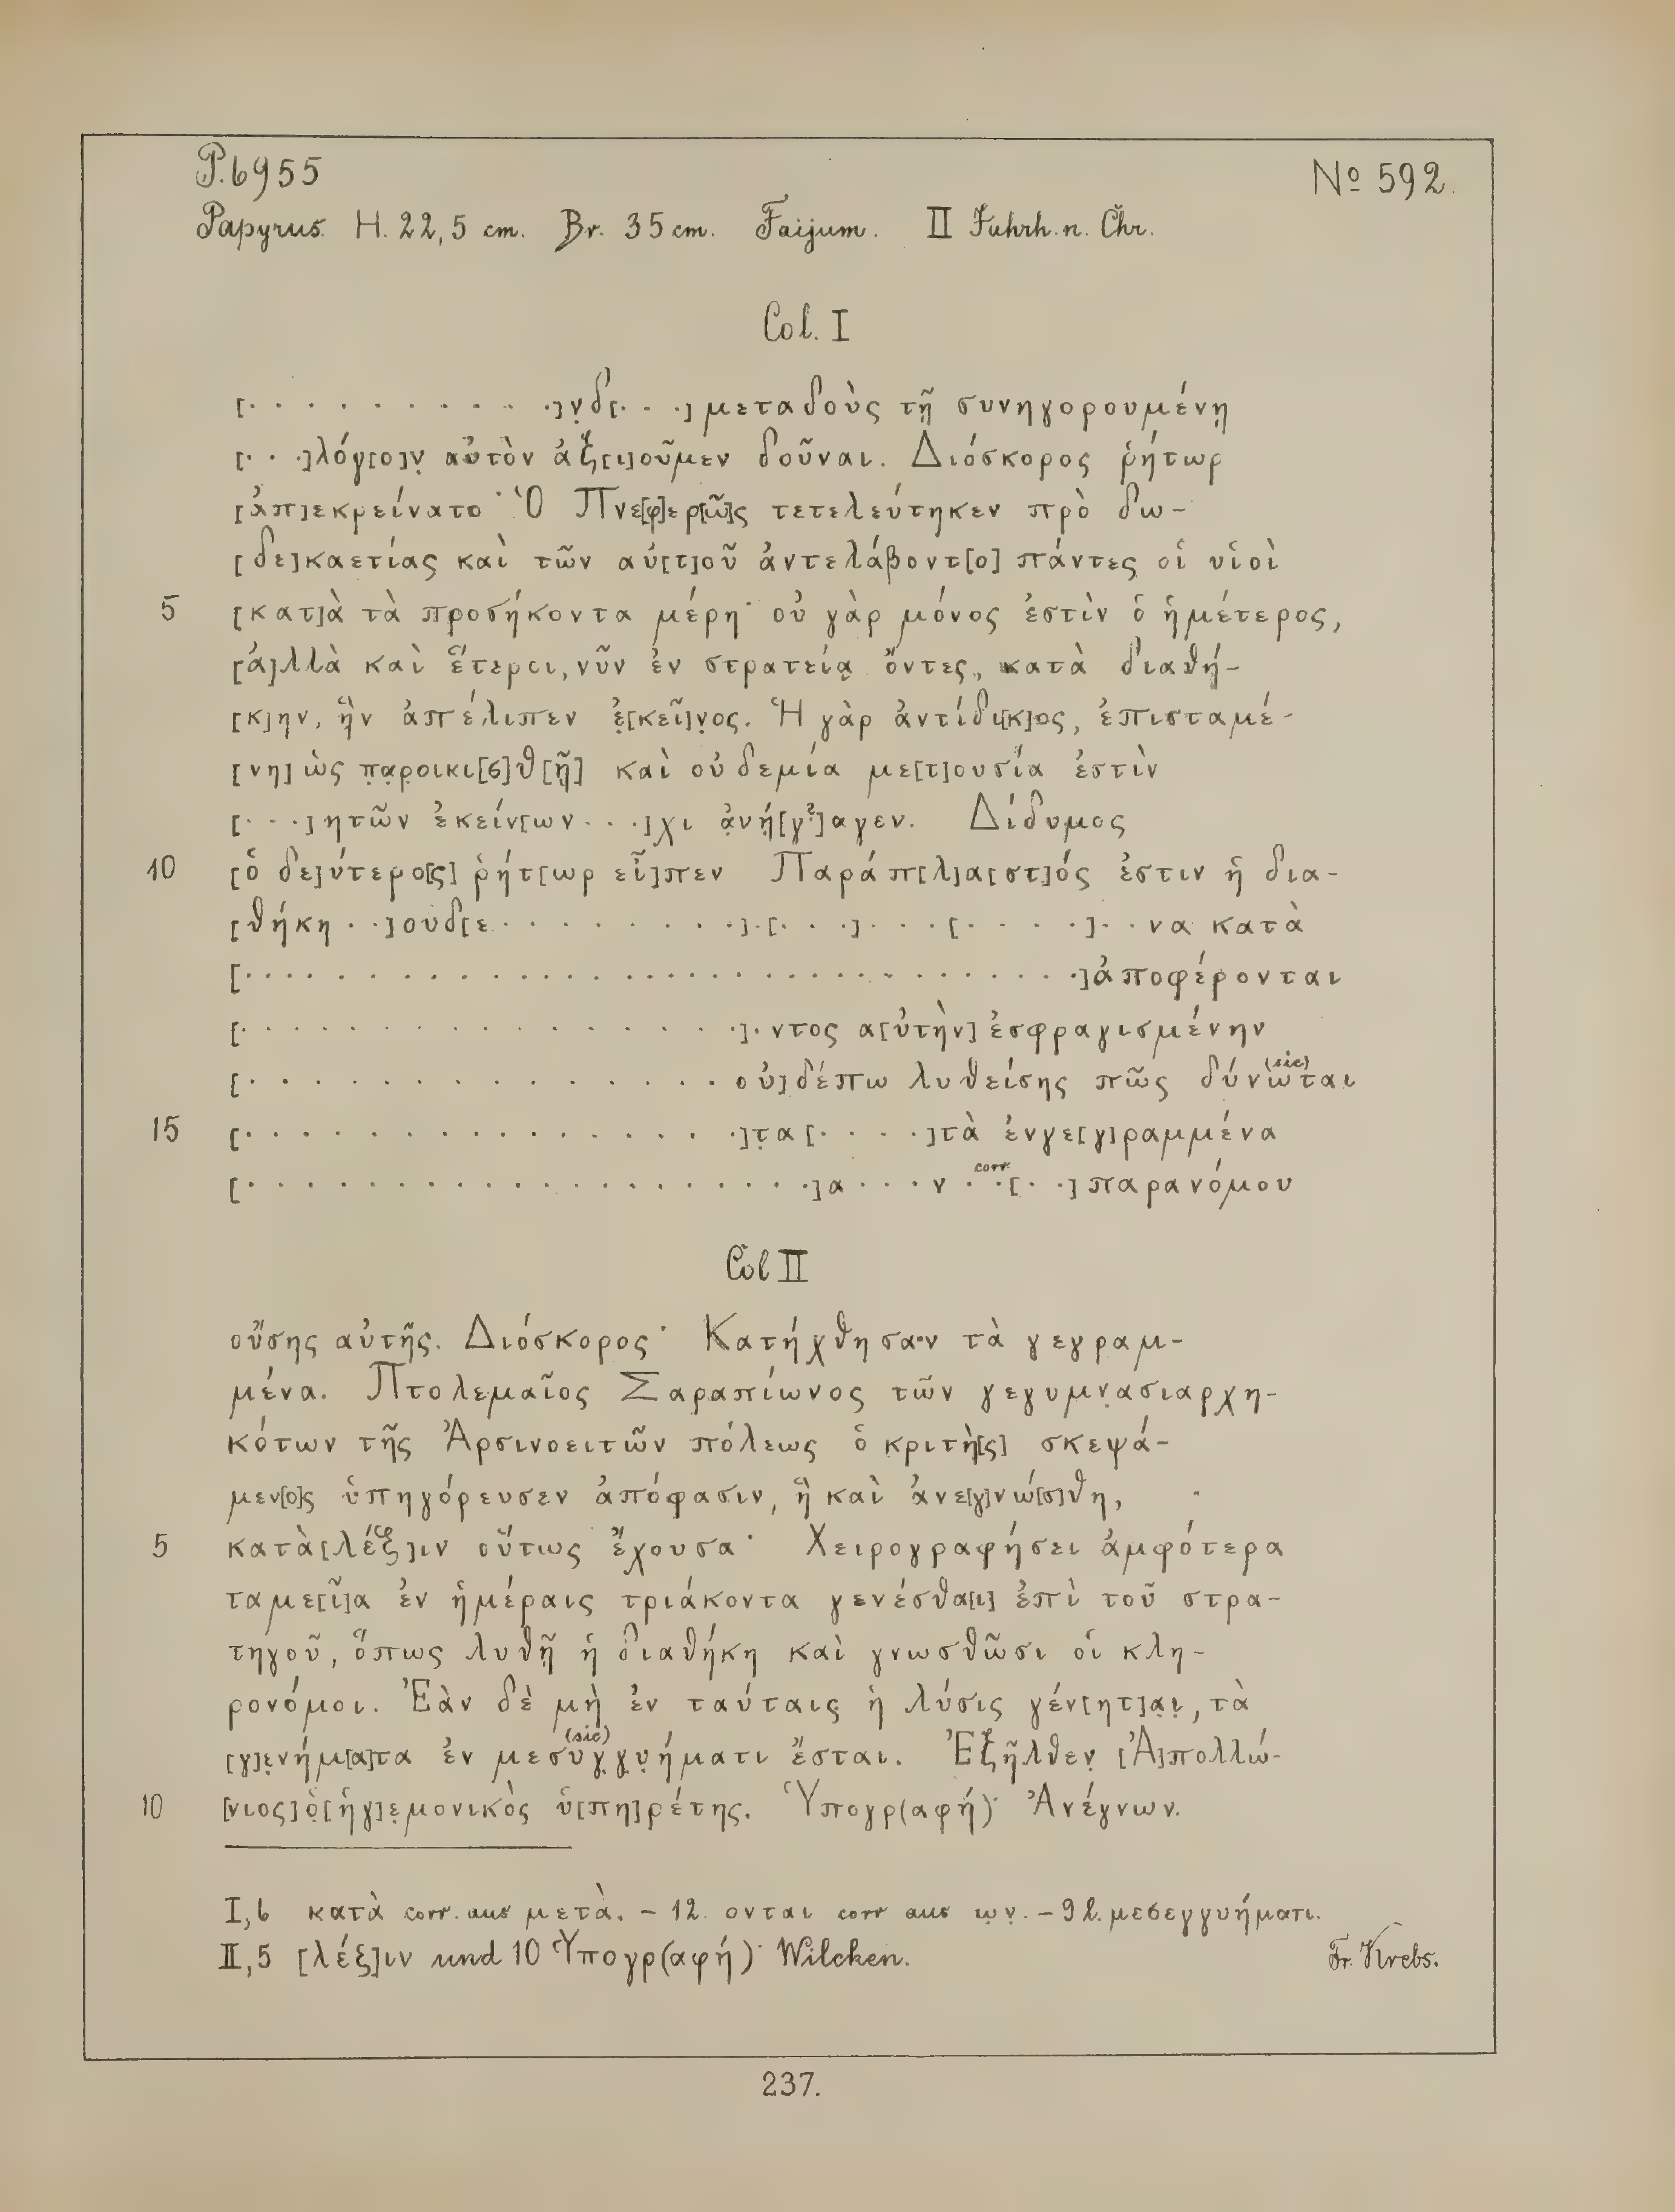 P.6955 No 592.
Papyrus. H. 22,5 cm. Br. 35 cm. Faijum. II Jahrh. n. Chr.
Col. I
[· · · · · · · · · ·]ν̣δ[· · ·] μεταδοὺς τῇ συνηγορουμένῃ
[· · ·]λόγ[ο]ν̣ αὐτὸν ἀξ[ι]οῦμεν δοῦναι. Διόσκορος ῥήτωρ
[ἀπ]εκρείνατο· Ὁ Πνε[φ]ερ[ῶ]ς τετελεύτηκεν πρὸ δω-
[δε]καετίας καὶ τῶν αὐ[τ]οῦ ἀντελάβοντ[ο] πάντες οἱ υἱοὶ
5 [κατ]ὰ τὰ προσήκοντα μέρη· οὐ γὰρ μόνος ἐστὶν ὁ ἡμέτερος,
[ἀ]λλὰ καὶ ἕτεροι, νῦν ἐν στρατείᾳ ὄντες, κατὰ διαθή-
[κ]ην, ἣν ἀπέλιπεν ἐ̣[κεῖ]ν̣ος. Ἡ γὰρ ἀντίδι[κ]ος, ἐπισταμέ-
[νη] ὡς π̣α̣ρ̣οικι[σ]θ[ῇ] καὶ οὐδεμία με[τ]ουσία ἐστὶν
[· · ·] ητῶν ἐκείν[ων · · ·]χι ἀ̣νή̣[γ?]αγεν. Δίδυμος
10 [ὁ δε]ύτερο[ς] ῥήτ[ωρ εἶ]πεν Παράπ[λ]α[στ]ός ἐστιν ἡ δια-
[θήκη · ·]ουδ[ε · · · · · · · · ·]·[· · ·]· · ·[· · · · ·]· · να κατὰ
[· · · · · · · · · · · · · · · · · · · · · · · · · · · ·]ἀποφέρονται
[· · · · · · · · · · · · · · ·]· ντος α[ὐτὴν] ἐσφραγισμένην
[· · · · · · · · · · · · · · · οὐ]δέπω λυθείσης πῶς δύνω(sic)ται
15 [· · · · · · · · · · · · · · ·]τ̣α[· · · · ·]τὰ ἐνγε[γ]ραμμένα
[· · · · · · · · · · · · · · · · · ·]α · · · ν · corr. ·[· · ·] παρανόμου
Col II
οὔσης αὐτῆς. Διόσκορος· Κατήχθησαν τὰ γεγραμ-
μένα. Πτολεμαῖος Σαραπίωνος τῶν γεγυμν̣ασιαρχη-
κότων τῆς Ἀρσινοειτῶν πόλεως ὁ κριτὴ[ς] σκεψά-
μεν[ο]ς ὑπηγόρευσεν ἀπόφασιν, ἣ καὶ ἀνε[γ]νώ[σ]θη,
5 κατὰ[λέξ]ιν οὕτως ἔχουσα· Χειρογραφήσει ἀμφότερα
ταμε[ῖ]α ἐν ἡμέραις τριάκοντα γενέσθα[ι] ἐπὶ τοῦ στρα-
τηγοῦ, ὅπως λυθῇ ἡ διαθήκη καὶ γνωσθῶσι οἱ κλη-
ρονόμοι. Ἐὰν δὲ μὴ ἐν ταύταις ἡ λύσις γέν[ητ]α̣ι̣, τὰ
[γ]ε̣νήμ[α]τα ἐν μεσυ(sic)γ̣γ̣υ̣ήματι ἔσται. Ἐξῆλθεν̣ [Ἀ]πολλώ-
10 [νιος]ὁ̣[ἡγ]ε̣μονικὸς ὑ[πη]ρέτης. Ὑπογρ(αφή)· Ἀνέγνων.
I, 6 κατὰ corr. aus μετὰ. – 12. ονται corr aus ω̣ν̣. – 9 l. μεσεγγυήματι.
II, 5 [λέξ]ιν und 10 Ὑπογρ(αφή)· Wilcken. Fr. Krebs.
237.